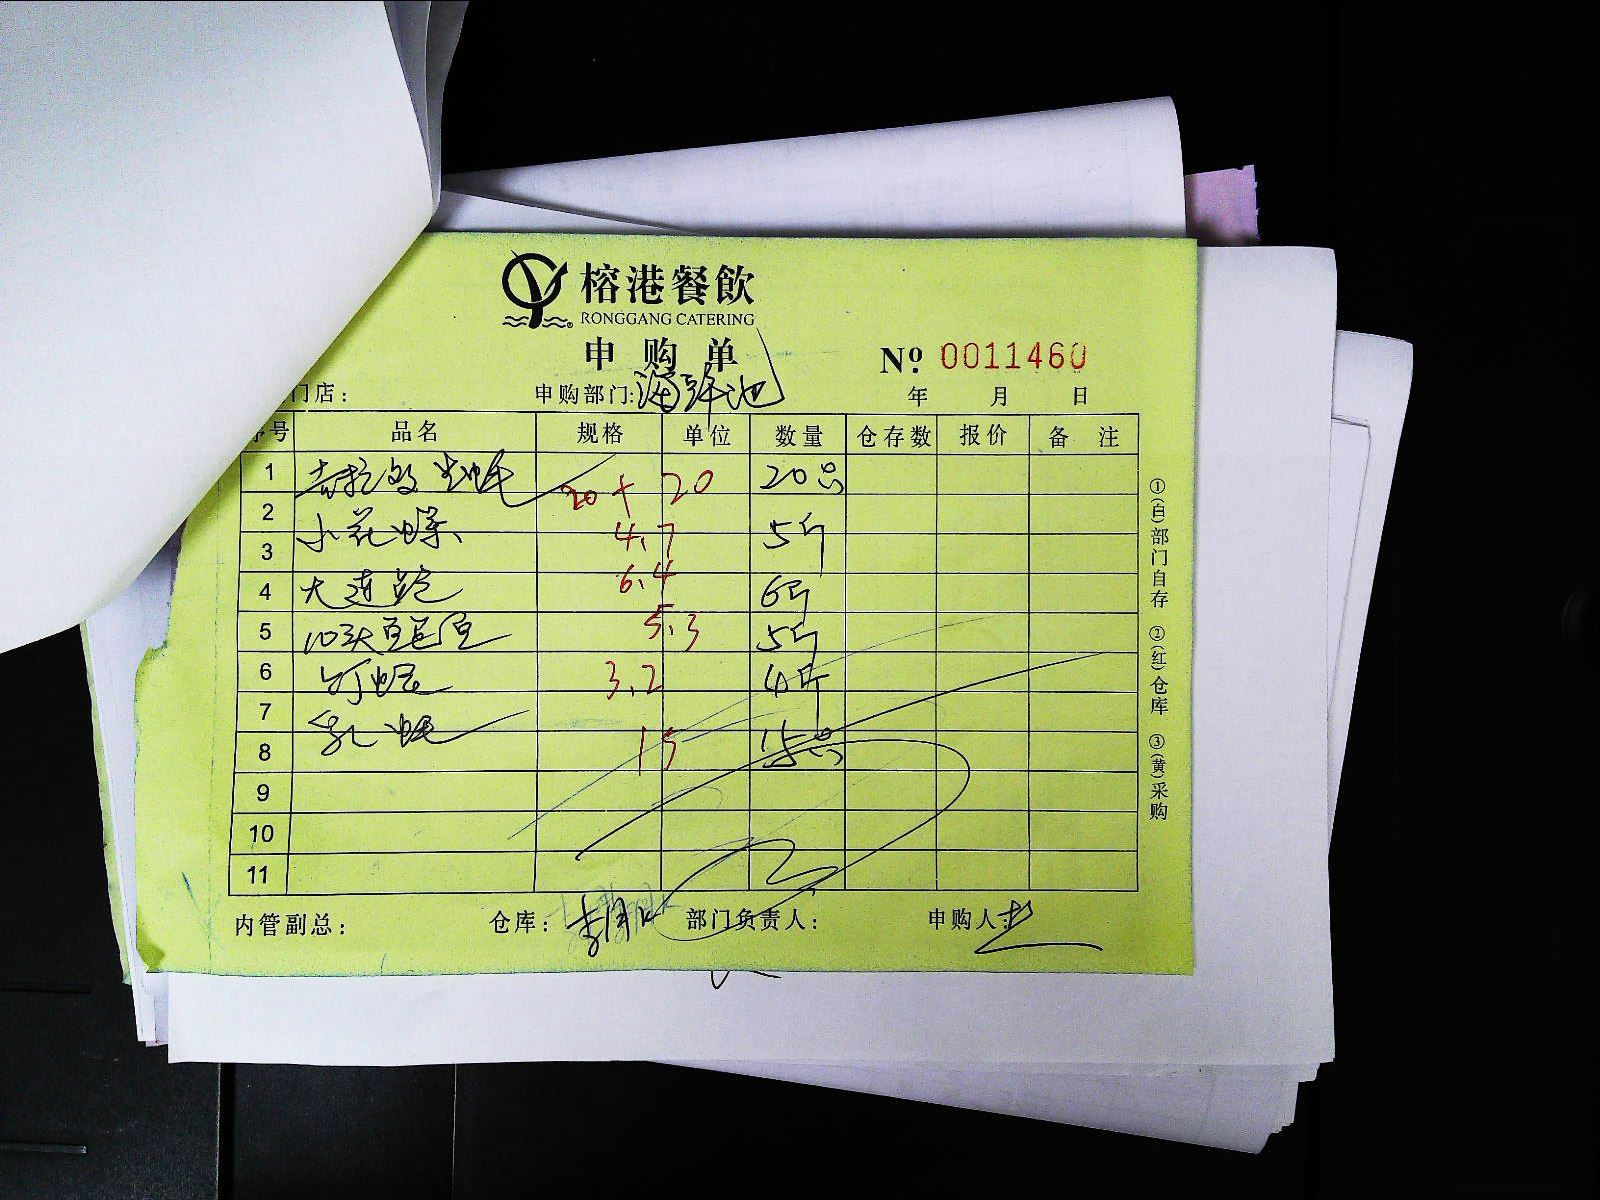 榕港餐飲
RONGGANG CATERING
申购单
Nº 0011460
门店: 申购部门:海鲜池 年 月 日
序号 品名 规格 单位 数量 仓存数 报价 备 注
1 20+20 20只
2 小花螺 4.7 5斤
3
4 大连鲍 6.4 6斤
5 10头 5.3 5斤
6 3.2 4斤
7
8 乳 15 15只
9
10
11
内管副总: 仓库: 部门负责人: 申购人:
①(白)部门自存 ②(红)仓库 ③(黄)采购